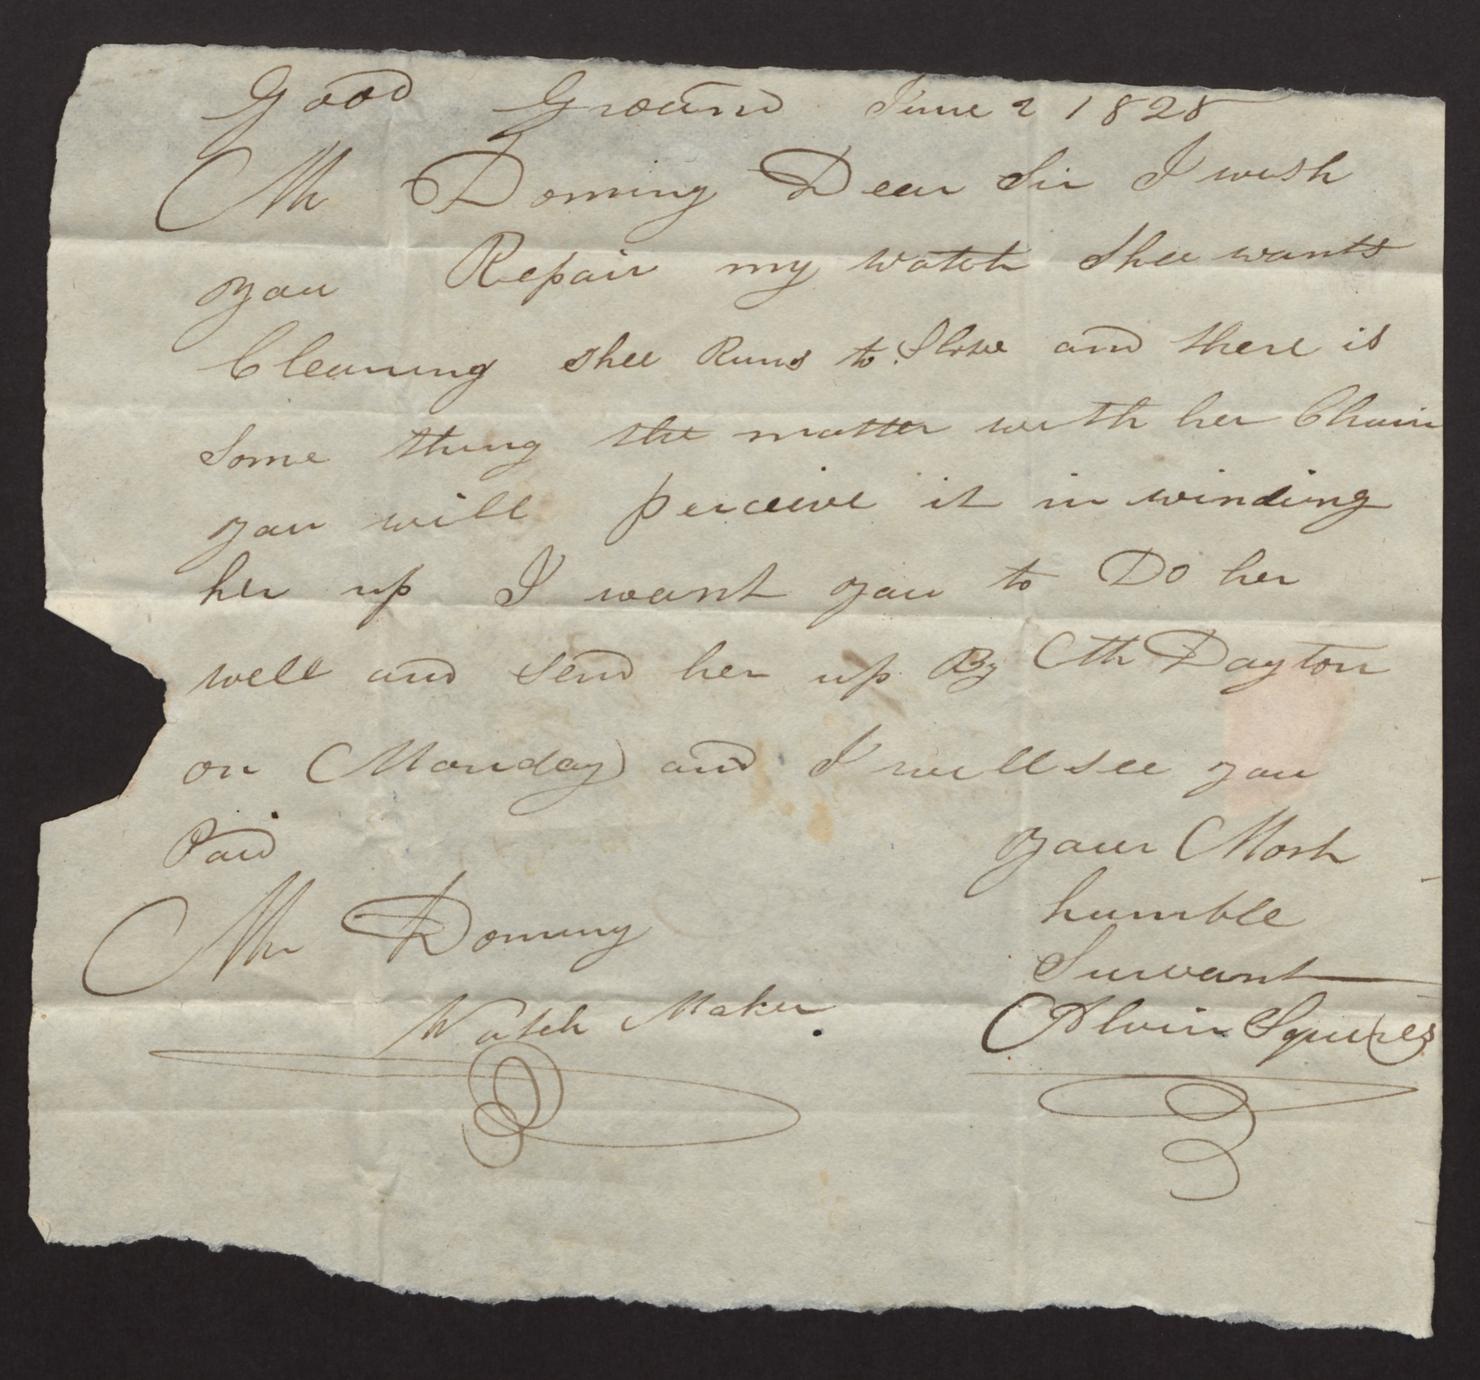 Good Ground June 2 1828
Mr Dominy Dear Sir I wish
you Repair my watch Shee wants
Cleaning Shee Runs to Slow and there is
Some thing the matter with her Chain
you will perceive it in winding
her up I want you to Do her
well and Send her up By Mr Dayton
on Monday and I will see you
Paid your Most
humble
Survant
Mr Dominy
Watch Maker
Alvin Squires